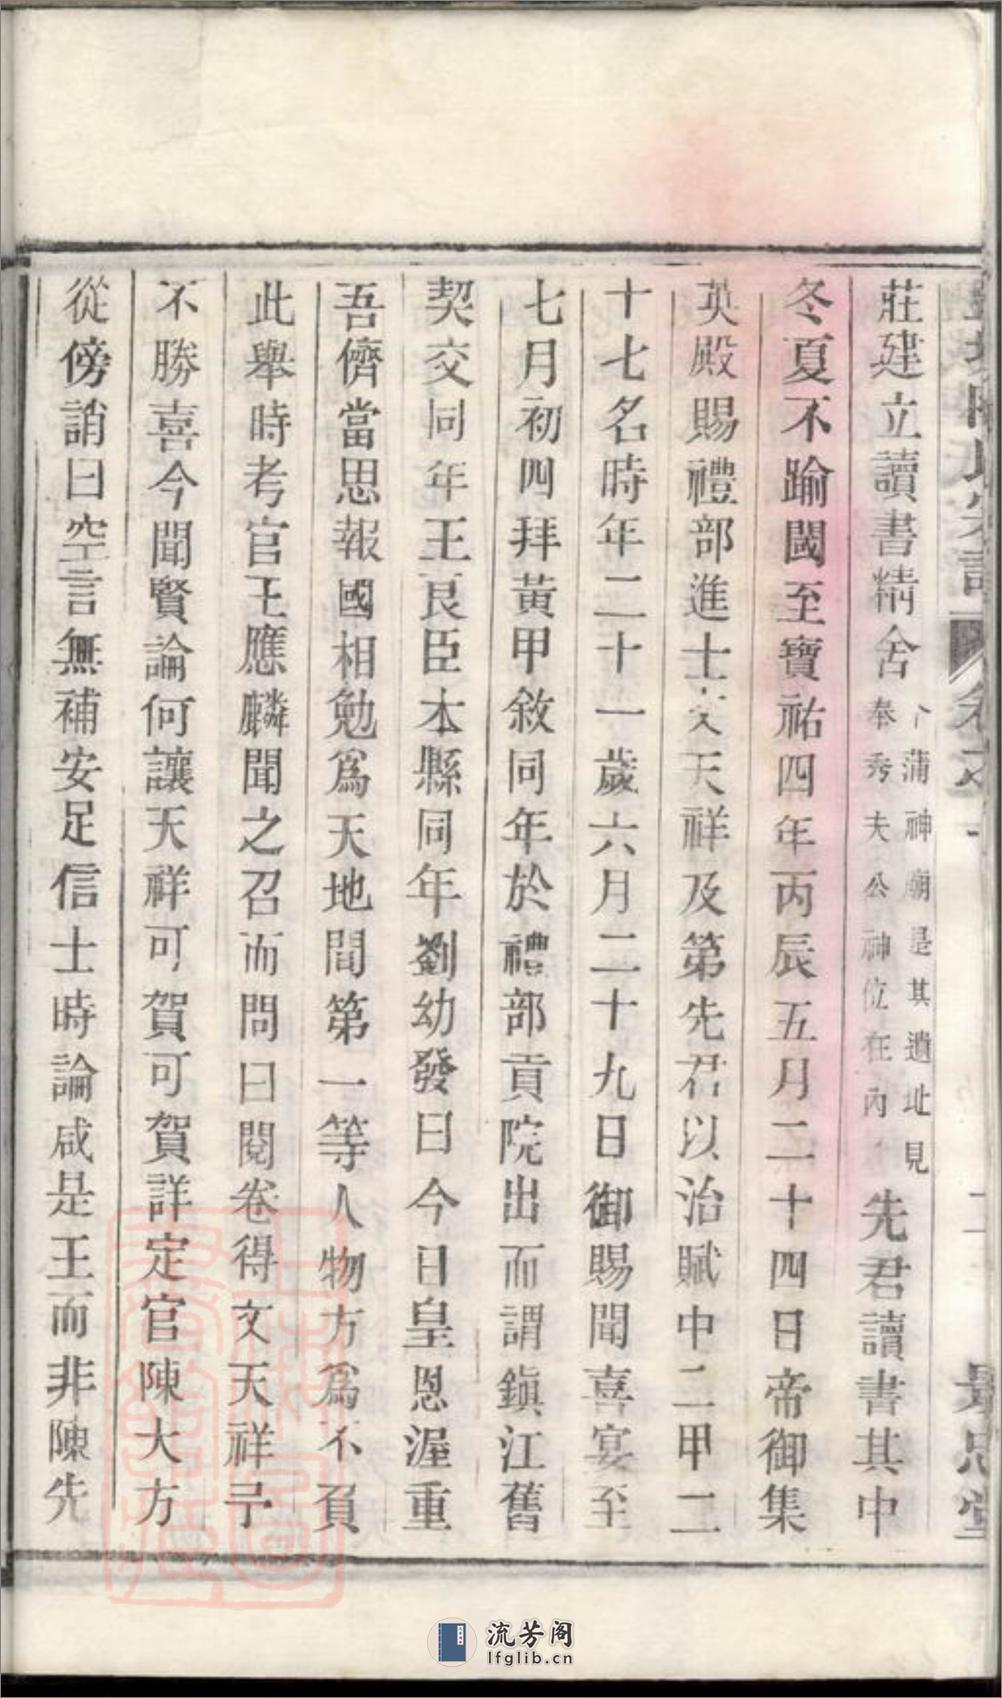 莊建立讀書精舍 蒲神廟是其遺址見奉秀夫公神位在內 先君讀書其中
冬夏不踰閾至寶祐四年丙辰五月二十四日帝御集
英殿賜禮部進士文天祥及第先君以治賦中二甲二
十七名時年二十一歲六月二十九日御賜聞喜宴至
七月初四拜黃甲敘同年於禮部貢院出而謂鎮江舊
契交同年王艮臣本縣同年劉幼發曰今日皇恩渥重
吾儕當思報國相勉爲天地間第一等人物方爲不負
此舉時考官王應麟聞之召而問曰閱卷得文天祥予
不勝喜今聞賢論何讓天祥可賀可賀詳定官陳大方
從傍誚曰空言無補安足信士時論咸是王而非陳先
景思堂
流芳阁
lfglib.cn